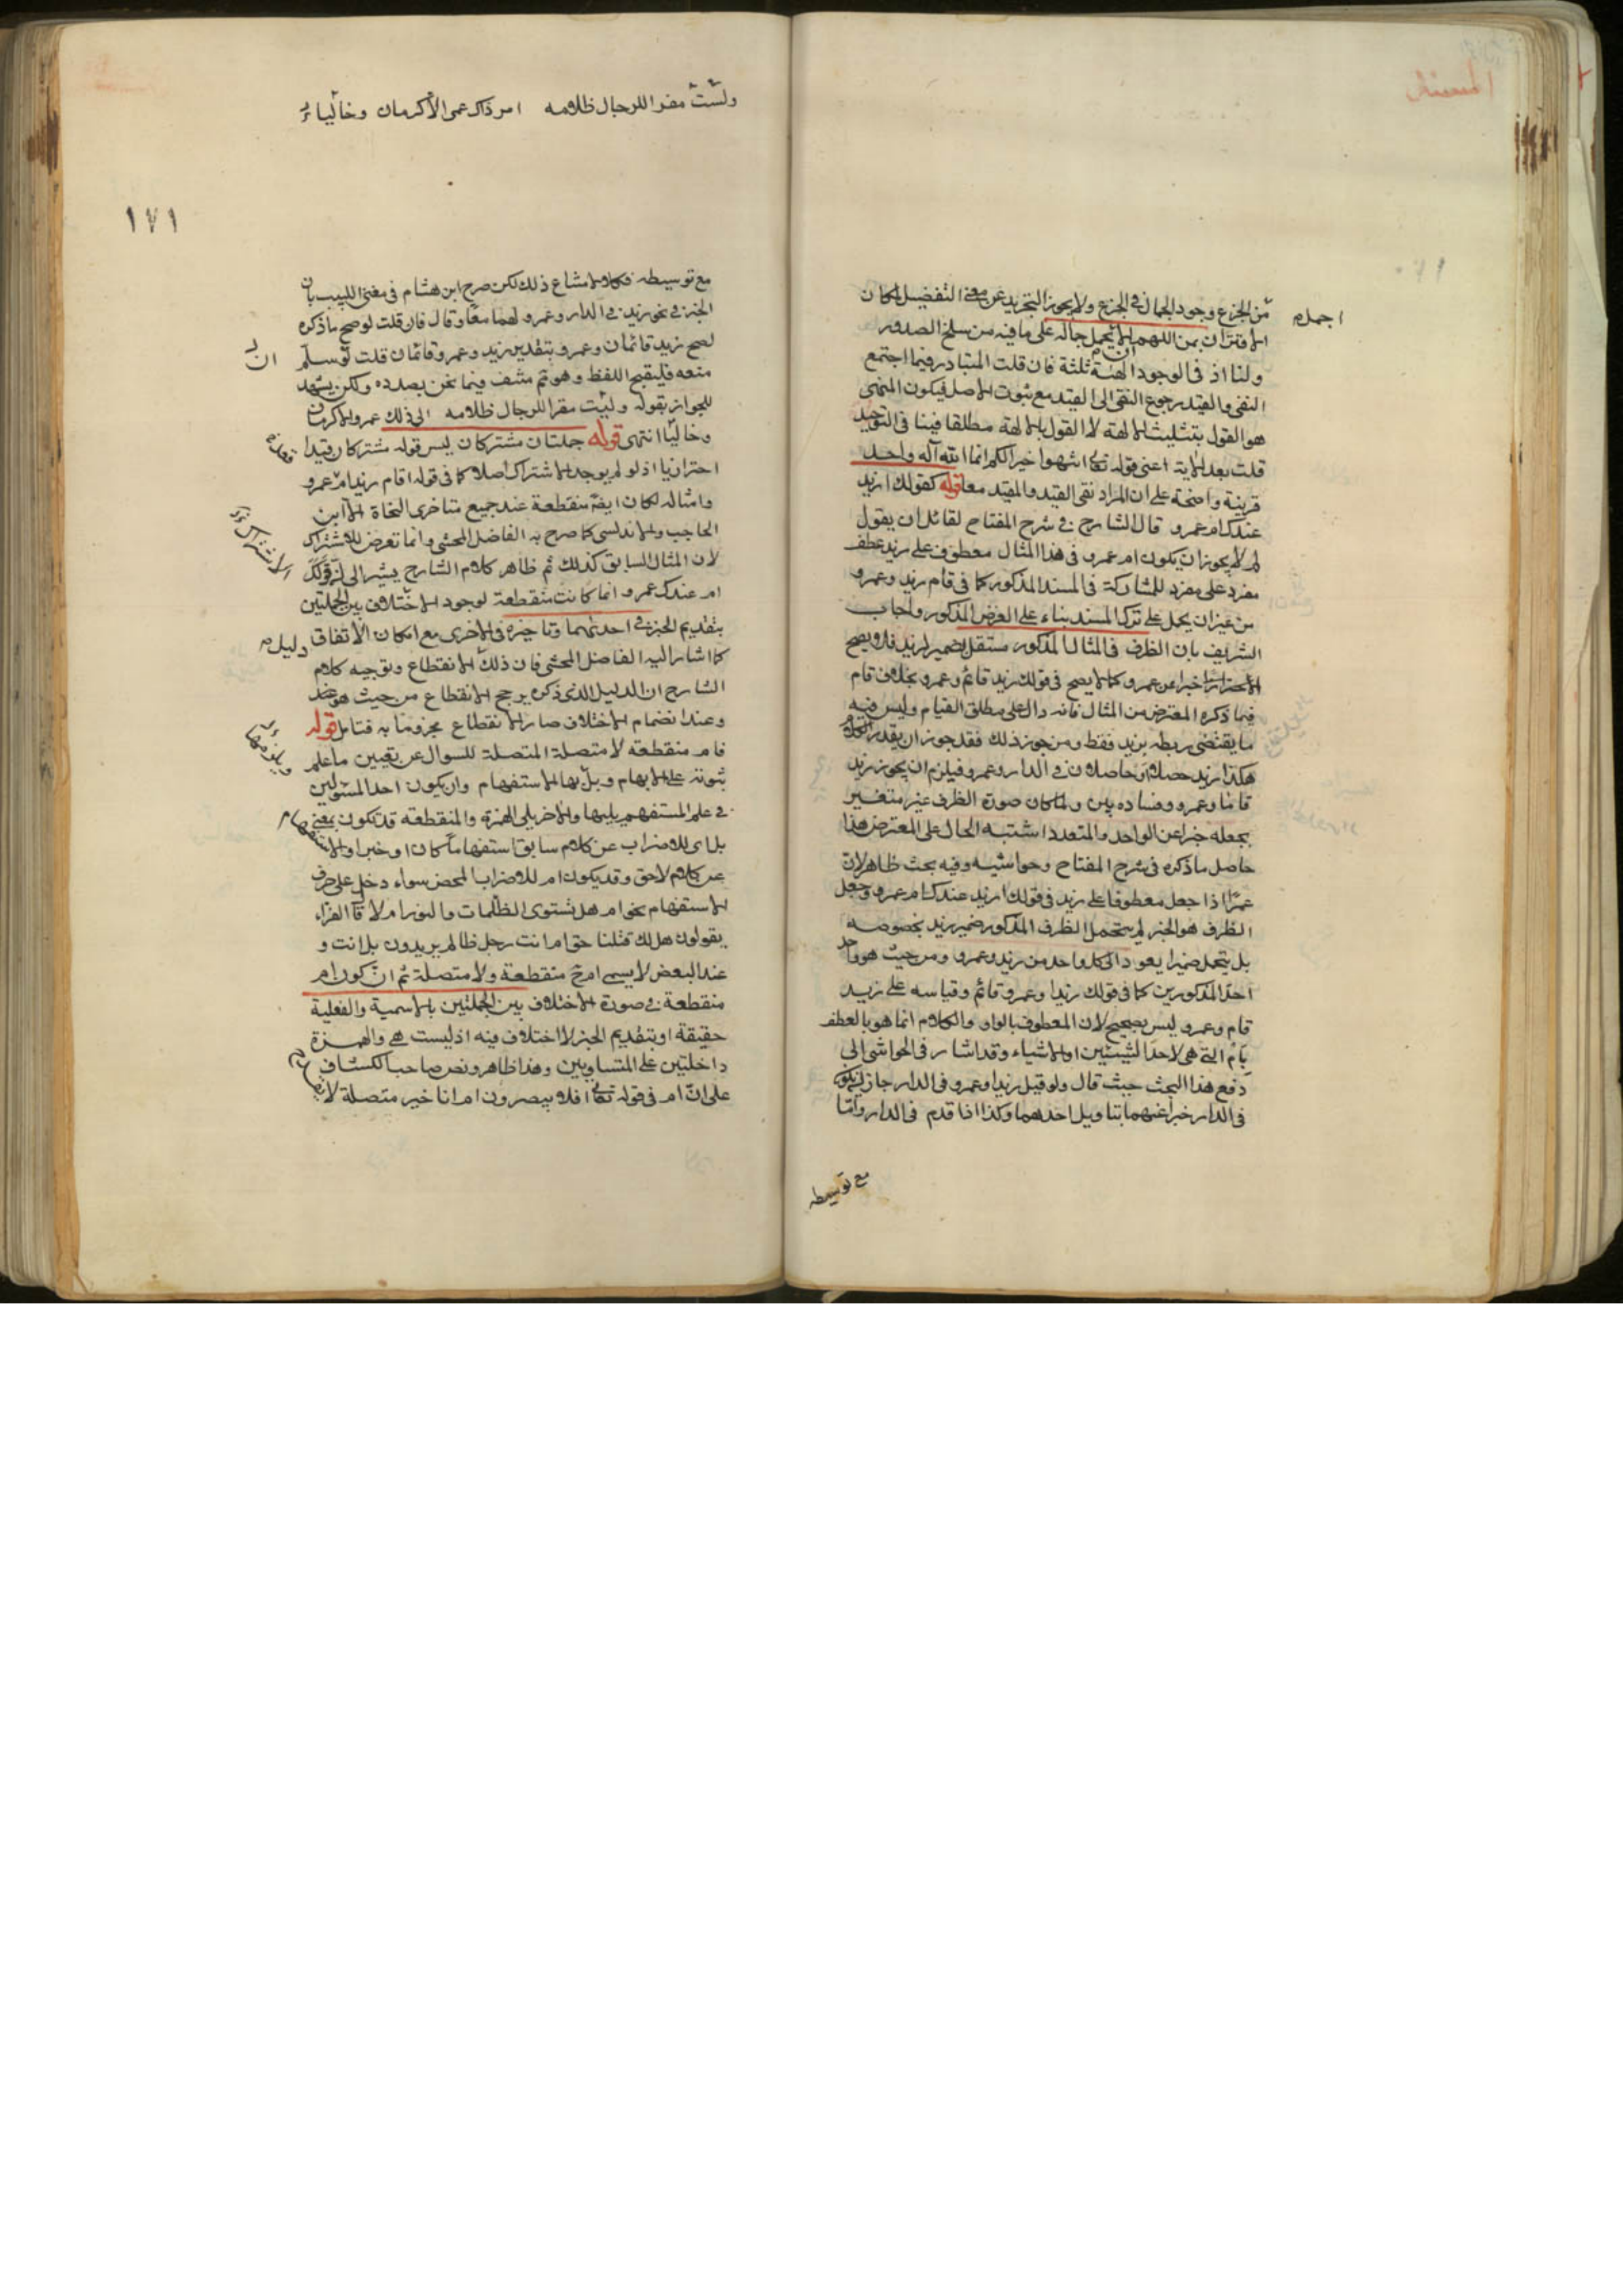 من الجزع وجود الجمال في الجزع ولا يجوز التجريد عن معنى التفضيل لمكان
اجمل
الاقتران بمن اللهم الا يحمل حاله على ما فيه من سلخ الصدور
ولنا اذ في الوجود الهة ثلثة فان قلت المتبادر فيما اجتمع
النفي والقيد رجوع النفي الى القيد مع ثبوت الاصل فيكون المنهى
هو القول بتثليث الالهة لا القول بالالهة مطلقا فينافى التوحيد
قلت بعد الاية اعنى قوله تعالى انتهوا خيرا لكم انما الله اله واحد
قرينة واضحة على ان المراد نفى القيد والمقيد معا قوله كقولك ازيد
عندك ام عمرو قال الشارح في شرح المفتاح لقائل ان يقول
لم لا يجوز ان يكون ام عمرو في هذا المثال معطوف على زيد عطف
مفرد على مفرد للمشاركة في المسند المذكور كما في قام زيد وعمرو
من غير ان يحمل على ترك المسند بناء على الغرض المذكور واجاب
الشريف بان الظرف في المثال المذكور مستقل بضمير لزيد فلا يصح
خبرا عن عمرو كما لا يصح في قولك زيد قائم وعمرو بخلاف قام
فيما ذكره المعترض من المثال فانه دال على مطلق القيام وليس فيه
ما يقتضى ربطه بزيد فقط ومن جوز ذلك فقد جوز ان يقدر الكلام
هكذا ازيد حصل او حاصلان في الدار وعمرو فيلزم ان يجوز زيد
قاما وعمرو وفساده بين ولما كان صورة الظرف غير متغير
بجعله خبرا عن الواحد والمتعدد اشتبه الحال على المعترض هذا
حاصل ما ذكره في شرح المفتاح وحواشيه وفيه بحث ظاهر لان
عمرا اذا جعل معطوفا على زيد في قولك ازيد عندك ام عمرو وجعل
الظرف هو الخبر لم يتحمل الظرف المذكور ضمير زيد بخصوصه
بل يتحمل ضميرا يعود الى كل واحد من زيد وعمرو ومن حيث هو واحد
احد المذكورين كما في قولك زيد او عمرو قائم وقياسه على زيد
قام وعمرو ليس بصحيح لان المعطوف بالواو والكلام انما هو بالعطف
بام التي هي لاحد الشيئين او الاشياء وقد اشار في الحواشى الى
دفع هذا البحث حيث قال ولو قيل زيد او عمرو في الدار جاز ان يكون
في الدار خبرا عنهما بتاويل احدهما وكذا اذا قدم في الدار واما
مع توسيطه
ولست مقرا للرجال ظلامه امر ذاك عمى الاكرمان وخاليا
١٧١
مع توسيطه فكلا لامشاع ذلك لكن صرح ابن هشام في مغنى اللبيب بان
الخبر في نحو زيد في الدار وعمرو لهما معا وقال فان قلت لو صح ما ذكره
لصح زيد قائمان وعمرو بتقدير زيد وعمرو قائمان قلت لو سلم
منعه فليقبح اللفظ وهو ثم منتف فيما نحن بصدده ولكن يشهد
للجواز بقوله ولست مقرا للرجال ظلامه ابى ذلك عمرو الاكرمان
وخاليا انتهى قوله جملتان مشتركان ليس قوله مشتركان قيدا
احترازيا اذ لو لم يوجد الاشتراك اصلا كما في قوله اقام زيد ام عمرو
وامثاله لكان ايضا منقطعة عند جميع متاخرى النحاة الا ابن
الحاجب والاندلسى كما صرح به الفاضل المحشى وانما تعرض للاشتراك
لان المثال السابق كذلك ثم ظاهر كلام الشارح يشير الى ان قولك
ام عندك عمرو انما كانت منقطعة لوجود الاختلاف بين الجملتين
بتقديم الخبر في احديهما وتاخيره في الاخرى مع امكان الاتفاق
دليل
كما اشار اليه الفاضل المحشى فان ذلك الانقطاع وتوجيه كلام
الشارح ان الدليل الذى ذكره يرجح الانقطاع من حيث هو عند
وعند انضمام الاختلاف صار الانقطاع مجزوما به فتامل قوله
فام منقطعة لا متصلة المتصلة للسوال عن تعيين ما علم
ثبوته على الابهام ويليها الاستفهام وان يكون احد المسئولين
في علم المستفهم يليها والاخر يلى الهمزة والمنقطعة قد تكون بمعنى
بل اى للاضراب عن كلام سابق استفهاما كان او خبرا والاستفهام
عن كلام لاحق وقد يكون ام للاضراب المحض سواء دخل على حرف
الاستفهام نحو ام هل تستوى الظلمات والنور ام لا قال الفراء
يقولون هل لك قبلنا حق ام انت رجل ظالم يريدون بل انت و
عند البعض لا يسمى ام ح منقطعة ولا متصلة ثم ان كون ام
منقطعة في صورة الاختلاف بين الجملتين بالاسمية والفعلية
حقيقة او بتقديم الخبر لا اختلاف فيه اذ ليست هي والهمزة
داخلتين على المتساويين وهذا ظاهر ونص صاحب الكشاف
على ان ام في قوله تعالى افلا تبصرون ام انا خير متصلة لان